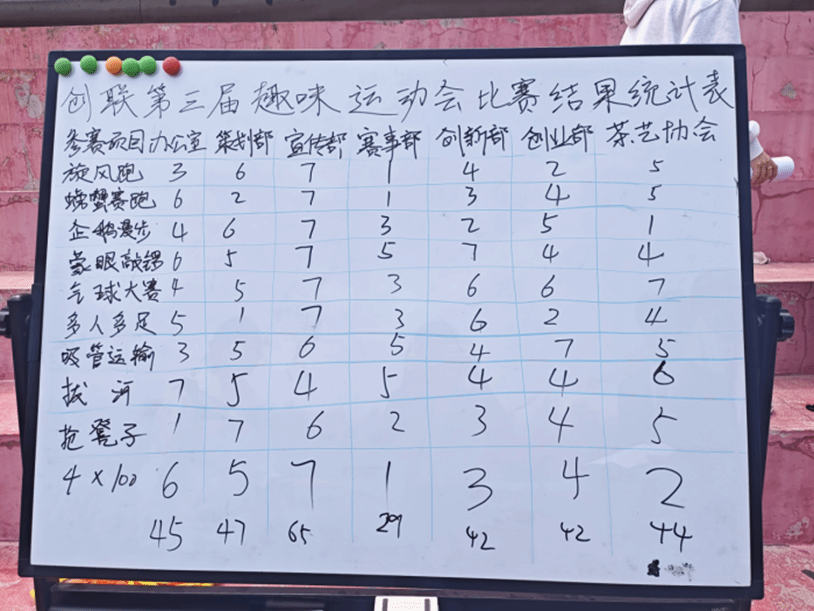 创联第三届趣味运动会比赛结果统计表
参赛项目 办公室 策划部 宣传部 赛事部 创新部 创业部 茶艺协会
旋风跑 3 6 7 1 4 2 5
螃蟹赛跑 6 2 7 1 3 4 5
企鹅漫步 4 6 7 3 2 5 1
蒙眼敲锣 6 5 7 5 7 4 4
气球大赛 4 5 7 3 6 6 7
多人多足 5 1 7 3 6 2 4
吸管运输 3 5 6 5 4 7 5
拔河 7 5 4 5 4 4 6
抢凳子 1 7 6 2 3 4 5
4×100 6 5 7 1 3 4 2
45 47 65 29 42 42 44